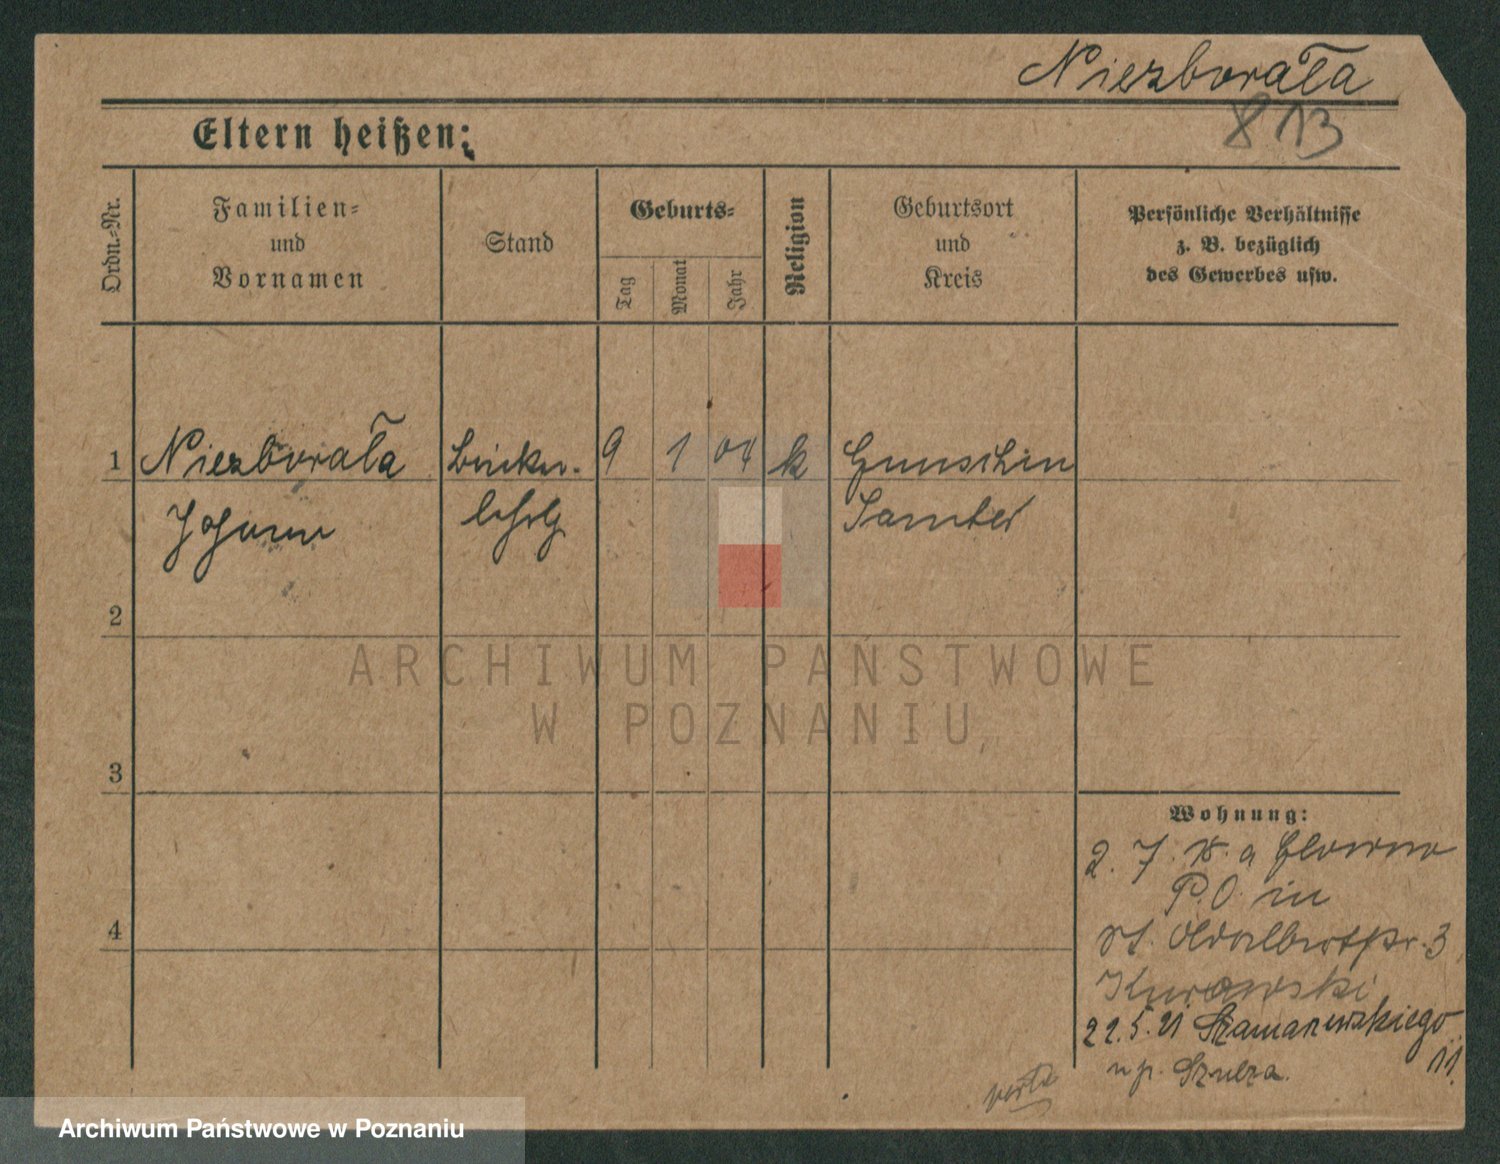 Niezborała
813
Eltern heißen:
Ordn.-Nr.
Familien-
und
Vornamen
Stand
Geburts-
Tag
Monat
Jahr
Religion
Geburtsort
und
Kreis
Persönliche Verhältnisse
z. B. bezüglich
des Gewerbes usw.
1 Niezborała 9 1 04 k
Johann Samter
2
3
4
Wohnung:
2. 7. a
P.O. in
St. Adalbertstr. 3
Kurowski
22.5.21 Szamarzewskiego
11.
u p. Szulza.
ARCHIWUM PAŃSTWOWE
W POZNANIU
Archiwum Państwowe w Poznaniu